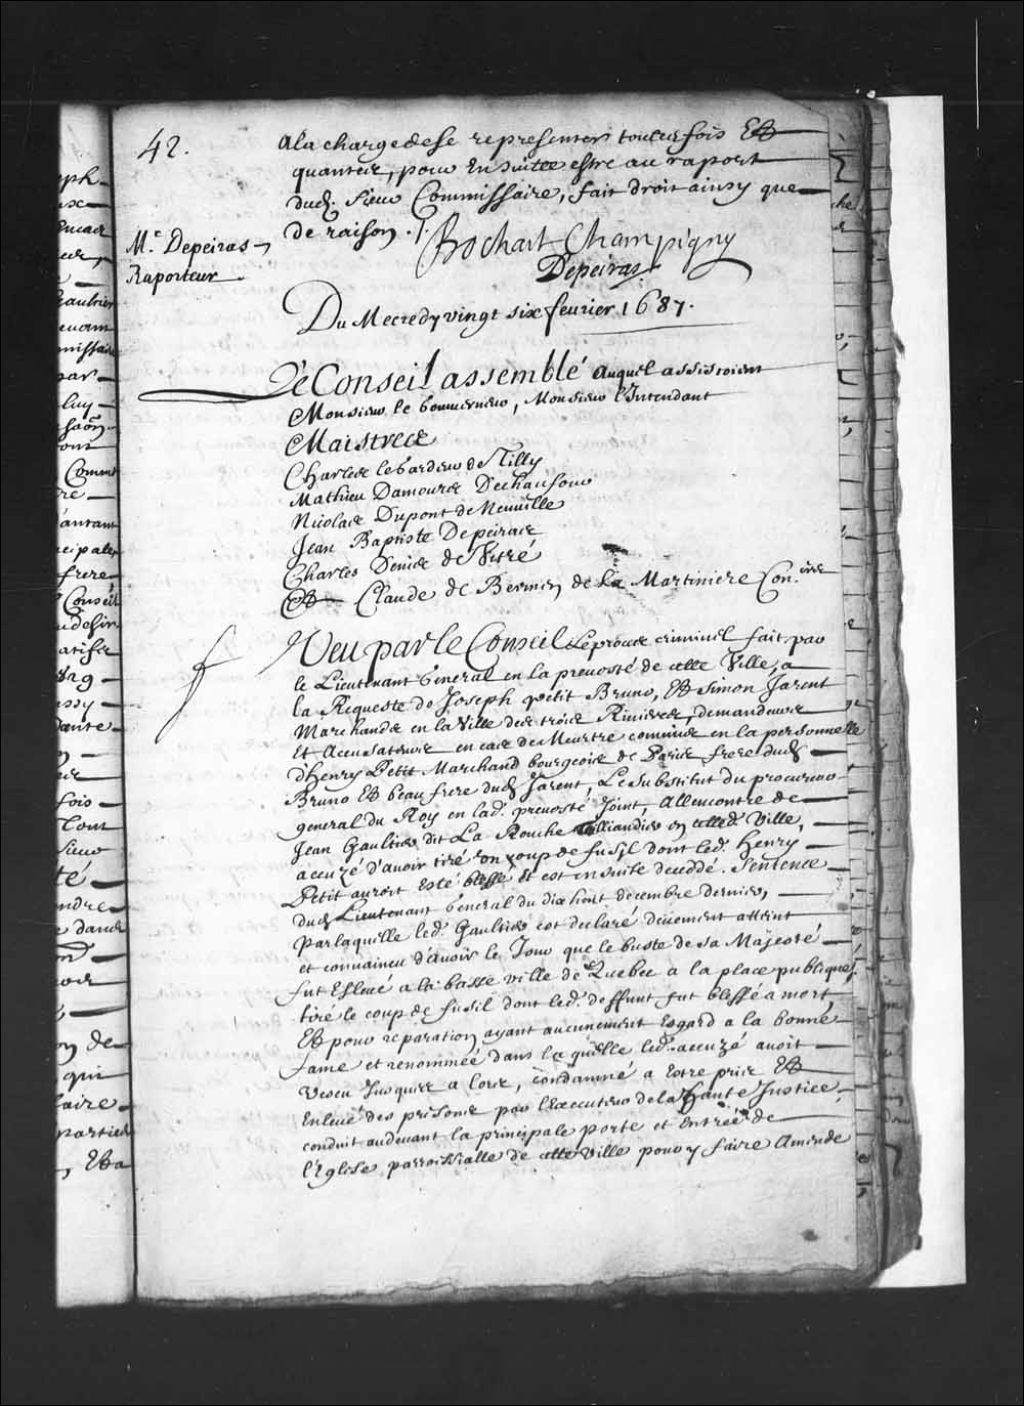 42.
a la charge de se representer toutes fois Et
quantes, pour En suitte estre au raport
dud. Sieur Commissaire, fait droit ainsy que
de raison ./.
Mc. Depeiras
Raporteur
Bochart Champigny
Depeiras
Du Mecredy vingt six feurier 1687.
Le Conseil assemblé auquel assistoient
Monsieur le Gouuerneur, Monsieur l'Intendant
Maistres
Charles le Gardeur de Tilly
Mathieu Damours Deschaufour
Nicolas Dupont de Neuuille
Jean Baptiste Depeiras
Charles Denis de Vitré
Et Claude de Bermen de la Martiniere Con.ers
Veu par le Conseil Le procés criminel fait par
le Lieutenant General en la preuosté de cette Ville, a
la Requeste de Joseph petit Bruno, Et Simon Jarent
Marchands en la Ville des trois Riuieres, demandeurs
Et Accusateurs en cas de Meurtre commis en la personnelle
d'Henry Petit Marchand bourgeois de Paris frere dud.
Bruno Et beau frere dud. Jarent, Le Substitut du procureur
general du Roy en lad. preuosté Joint, Allencontre de
Jean Gaultier dit La Rouche Taillandier en cetted. Ville,
accuzé d'auoir tiré un coup de fusil dont led. Henry
Petit auroit esté blessé Et est ensuite decedé. Sentence
dud. Lieutenant General du dix huit decembre dernier,
par laquelle led. Gaultier est declaré deuement atteint
et conuaincu d'auoir le Jour que le buste de sa Majesté
fut Esleué a la basse ville de Quebec a la place publique,
tiré le coup de fusil dont led. deffunt fut blessé a mort,
Et pour reparation ayant aucunement Esgard a la bonne
fame et renommée dans laquelle led. accuzé auoit
vescu Jusques a lors, condamné a Estre pris Et
Enleué des prisons par l'Executeur de la Haute Justice,
conduit audeuant la principale porte et entrée de
l'Eglise parroissialle de cette ville pour y faire Amende